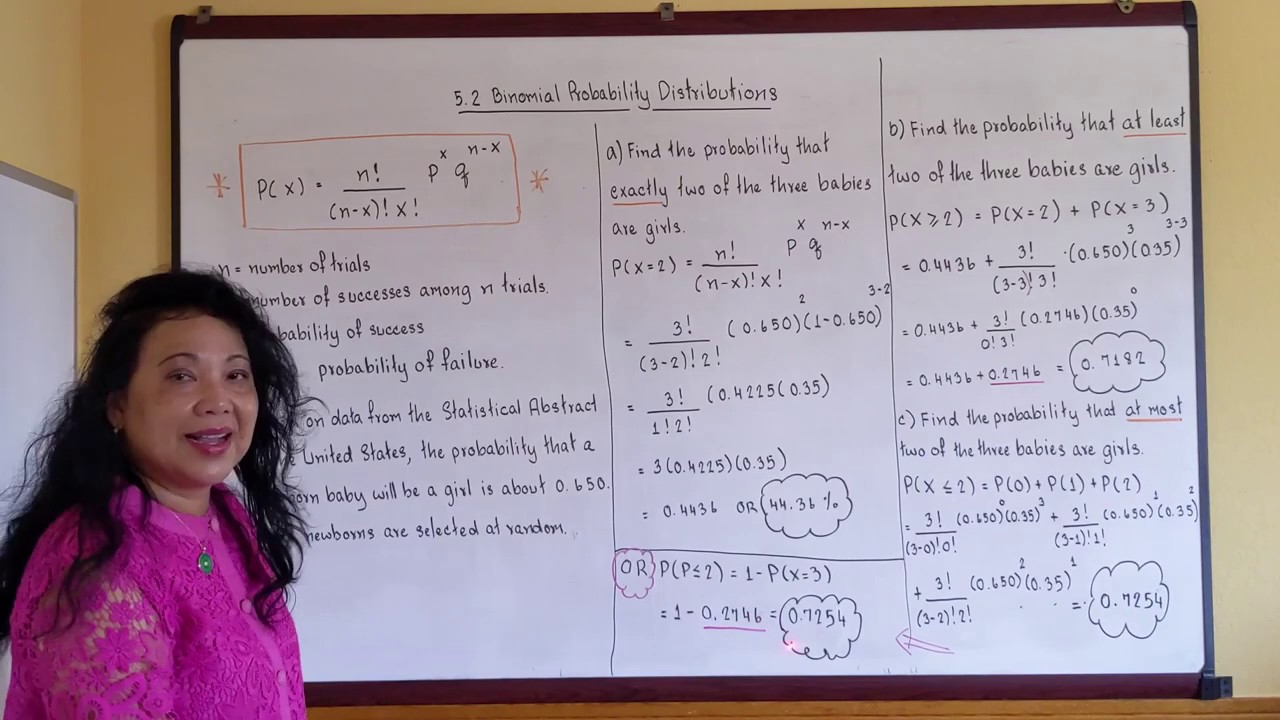 5.2 Binomial Probability Distributions
* P(x) = n! / (n-x)! x! p^x q^(n-x) *
n = number of trials
number of successes among n trials.
bability of success
probability of failure.
on data from the Statistical Abstract
United States, the probability that a
orn baby will be a girl is about 0.650.
newborns are selected at random.
a) Find the probability that
exactly two of the three babies
are girls.
P(x=2) = n! / (n-x)! x! p^x q^(n-x)
= 3! / (3-2)! 2! (0.650)^2 (1-0.650)^(3-2)
= 3! / 1! 2! (0.4225(0.35)
= 3(0.4225)(0.35)
= 0.4436 OR 44.36 %
OR P(P≤2) = 1 - P(x=3)
= 1 - 0.2746 = 0.7254
b) Find the probability that at least
two of the three babies are girls.
P(x≥2) = P(x=2) + P(x=3)
= 0.4436 + 3! / (3-3)! 3! · (0.650)^3 (0.35)^(3-3)
= 0.4436 + 3! / 0! 3! (0.2746)(0.35)^0
= 0.4436 + 0.2746 = 0.7182
c) Find the probability that at most
two of the three babies are girls.
P(x≤2) = P(0) + P(1) + P(2)
= 3! / (3-0)! 0! (0.650)^0 (0.35)^3 + 3! / (3-1)! 1! (0.650)^1 (0.35)^2
+ 3! / (3-2)! 2! (0.650)^2 (0.35)^1 = 0.7254